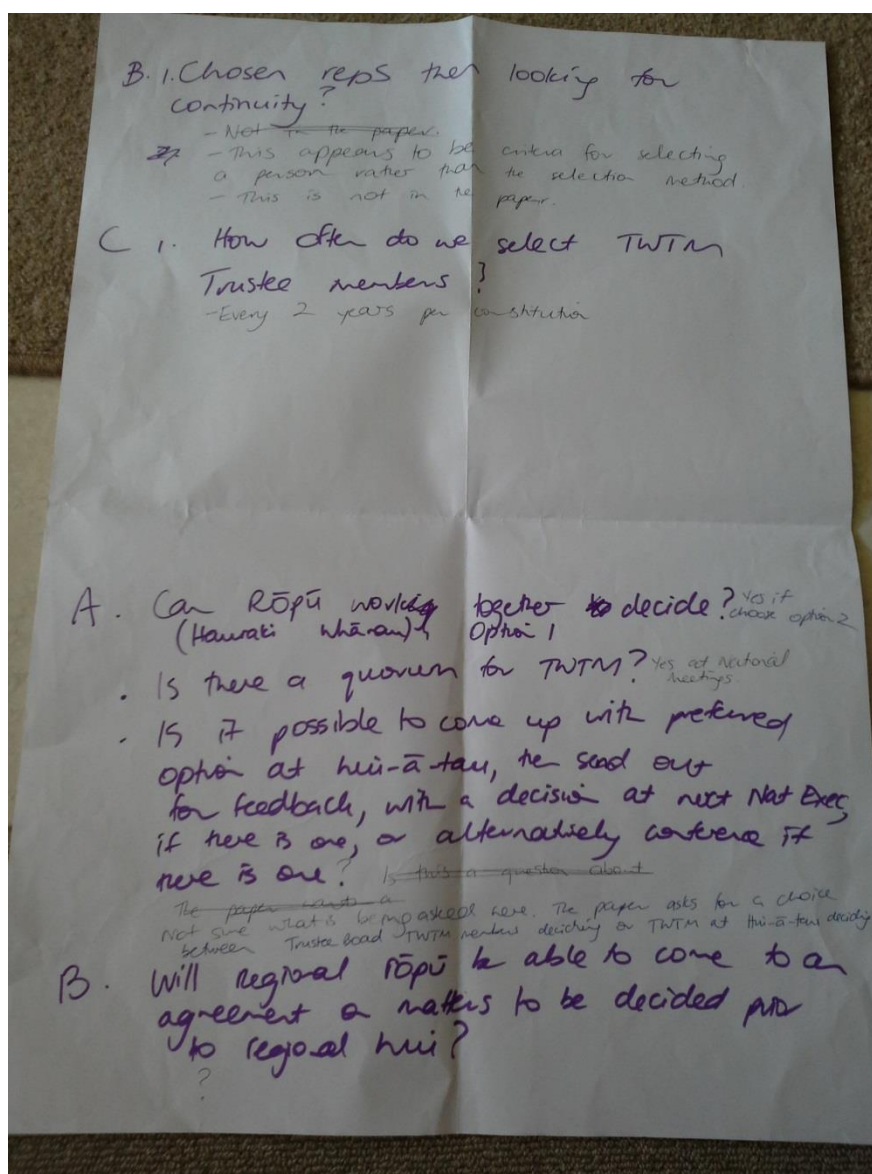 B. 1. Chosen reps then looking for
continuity?
- Not in the paper.
- This appears to be criteria for selecting
a person rather than the selection method.
- This is not in the paper.
C 1. How often do we select TWTM
Trustee members?
- Every 2 years per constitution
A. Can Rōpū working together to decide? Yes if
(Hauraki Whārau) Option 1 choose option 2
. Is there a quorum for TWTM? Yes at National
meetings.
. Is it possible to come up with preferred
option at hui-ā-tau, then send out
for feedback, with a decision at next Nat Exec,
if there is one, or alternatively conference if
there is one? Is this a question about
The paper wants a
Not sure what is being asked here. The paper asks for a choice
between Trustee Board TWTM members deciding or TWTM at Hui-ā-tau deciding
B. Will regional rōpū be able to come to an
agreement on matters to be decided prior
to regional hui?
?